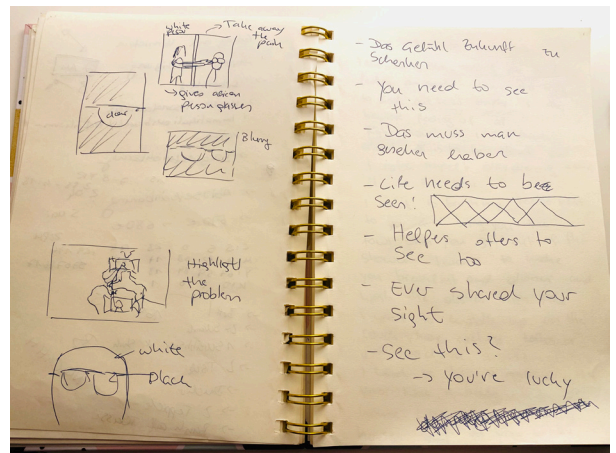 white
→ Take away
the pain
→ gives african
person glasses
clear
Blurry
Highlight
the
problem
white
Black
- Das Gefühl Zukunft zu
schenken
- You need to see
this
- Das muss man
gesehen haben
- Life needs to be
seen!
- Helps others to
see too
- Ever shared your
sight
- See this?
→ you're lucky